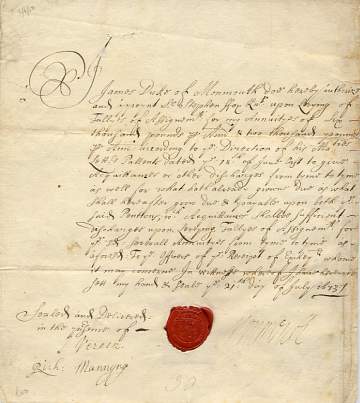 I
James Duke of Monmouth doe hereby authorize
and impower Sr Stephen Fox Knt upon Levying of
Tallies of Assignemt for my annuityes of Six
thousand pounds p Ann & two thousand pounds
p Ann according to ye Direction of his Maties
Letts Pattents Dated ye of June last to give
Acquittances or other discharges from tyme to tyme
as well for what hath already growne due as what
shall hereafter grow due & payable upon both ye
said Pentions, wch Acquittances shall be sufficient
discharges upon Levying Tallyes of Assignemt for
ye sd severall Annuityes from tyme to tyme as
aforesd To ye Officers of ye Receipt of Excheqr & whome
it may concerne In witness whereof I have hereunto
sett my hand & Seale ye 21th day of July 1673
Sealed and Delivered
in the presence of
Vernon
Rich: Mannyng
Monmouth